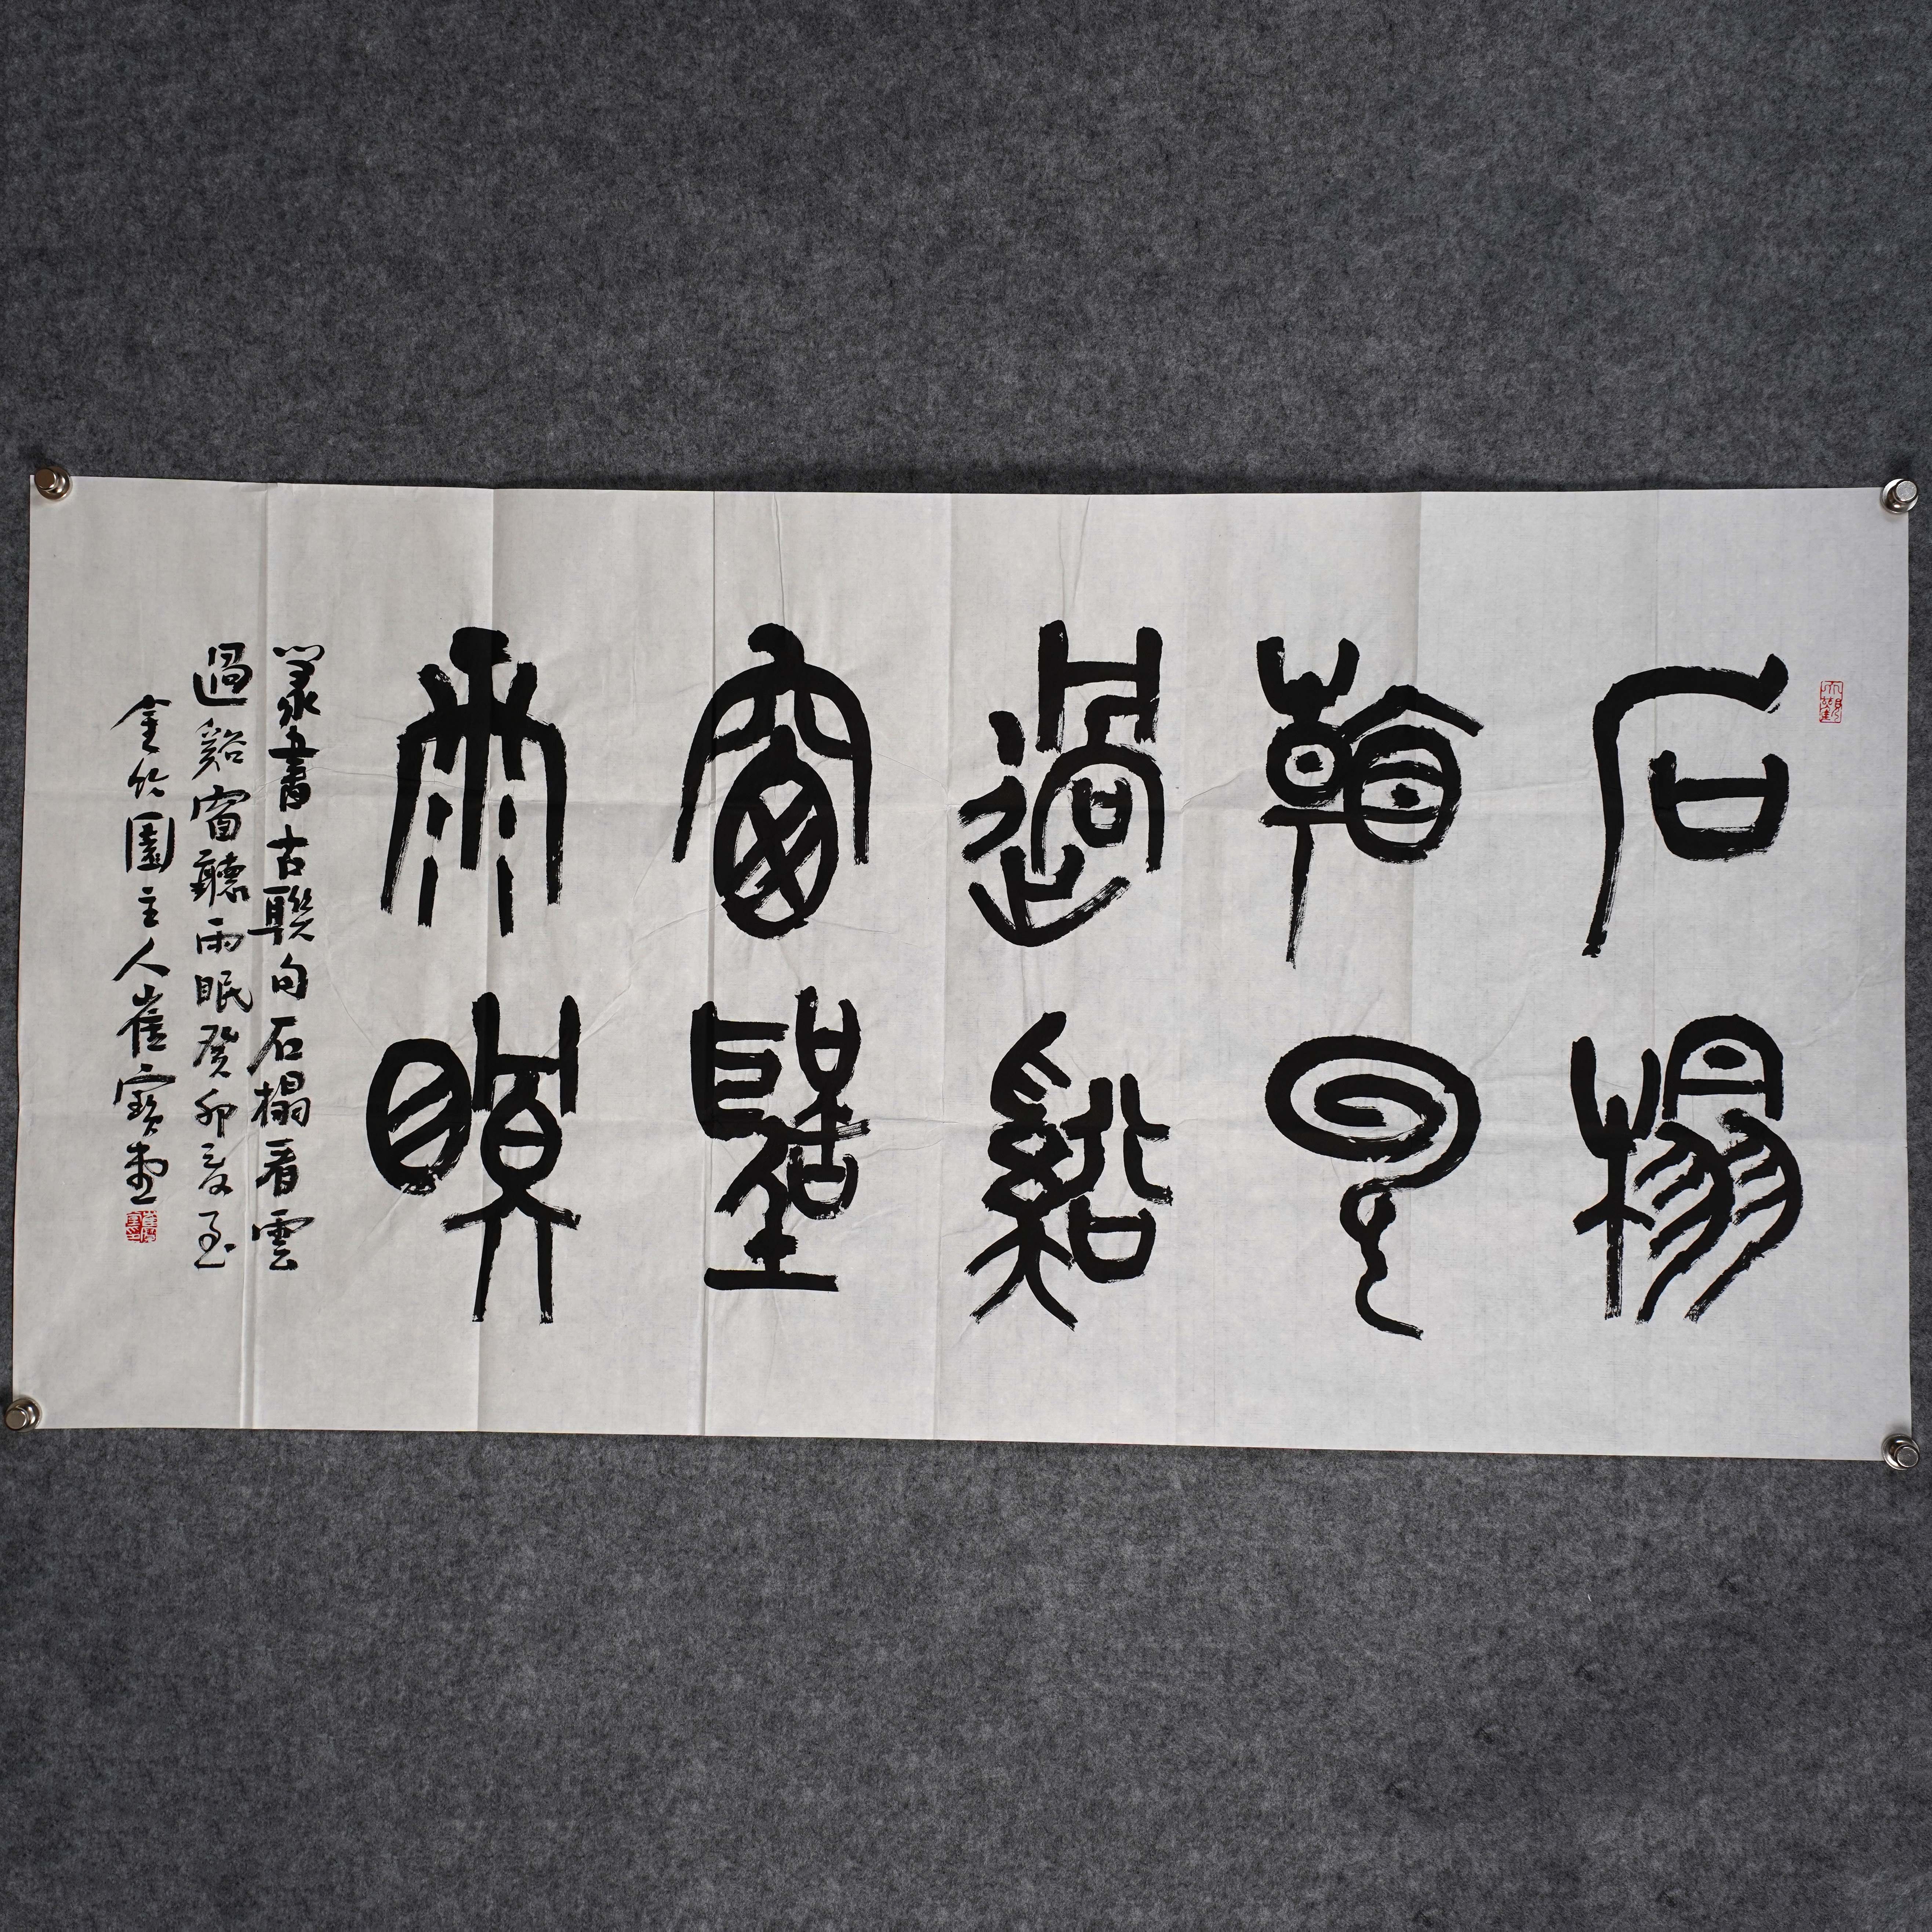 石榻
看雲
過谿
窗聽
雨眠
篆書古聯句石榻看雲
過谿窗聽雨眠癸卯夏至
金竹園主人崔寶堂